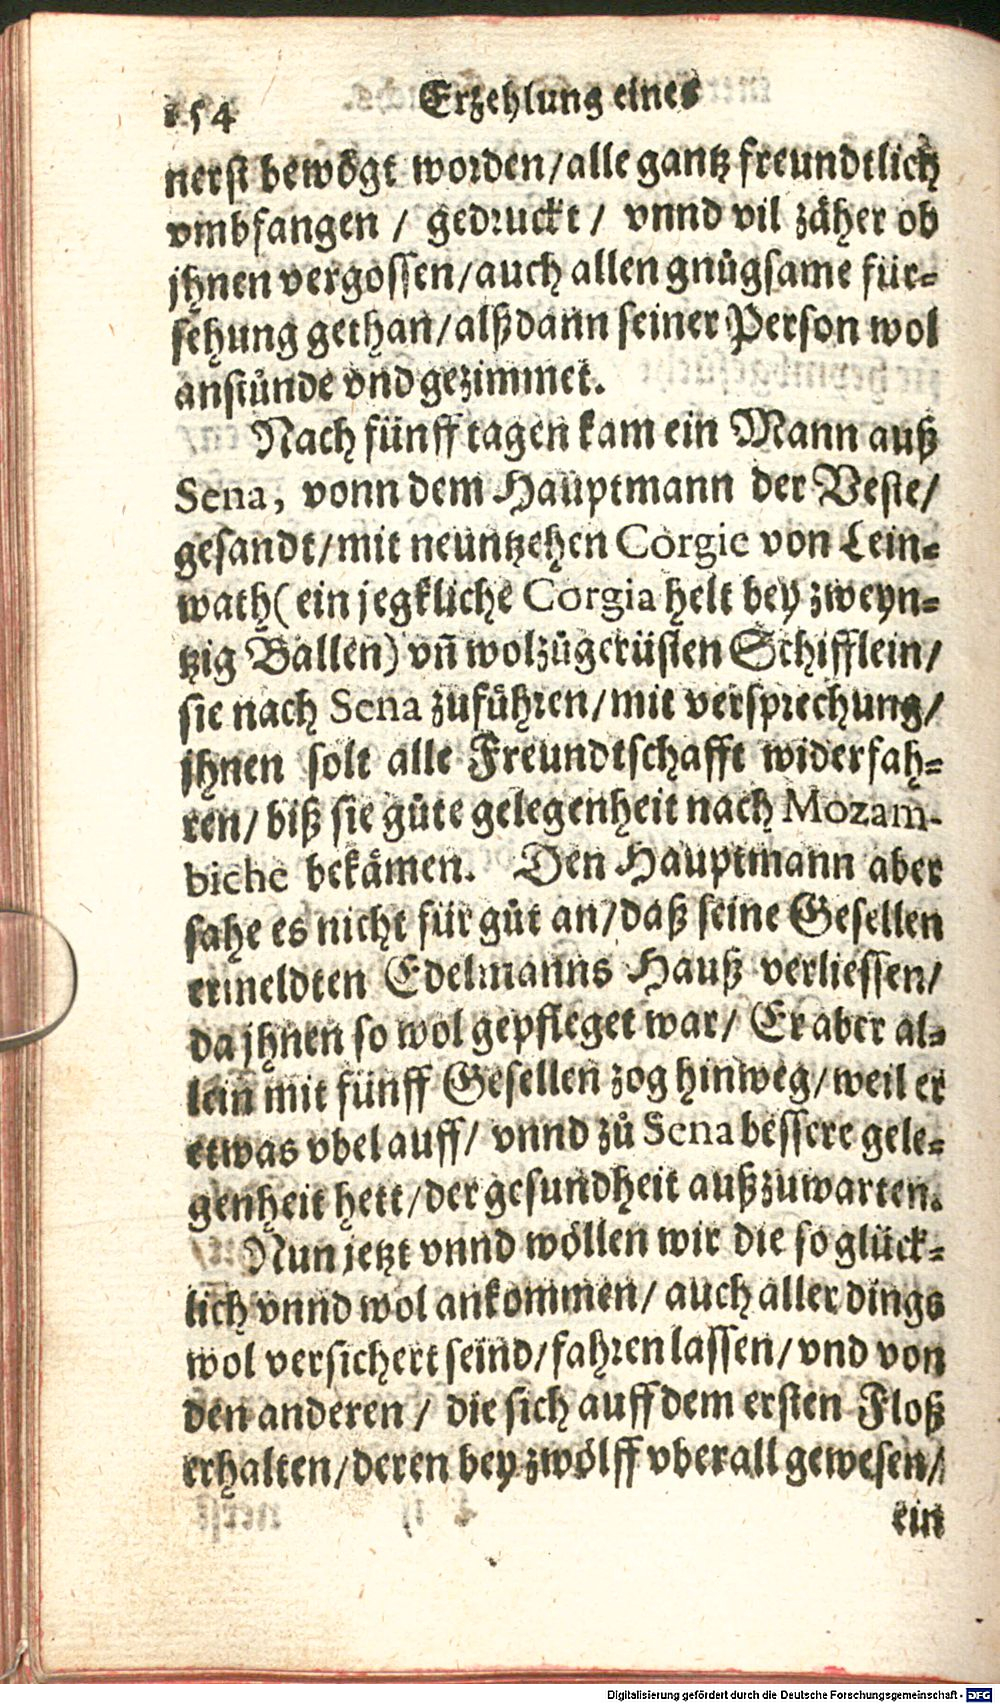 154 Erzehlung eines
nerst bewögt worden/alle gantz freundtlich
vmbfangen / gedruckt / vnnd vil zäher ob
jhnen vergossen/auch allen gnůgsame für-
sehung gethan/alßdann seiner Person wol
anstůnde vnd gezimmet.
Nach fünff tagen kam ein Mann auß
Sena, vonn dem Hauptmann der Veste/
gesandt/mit neuntzehen Corgie von Lein-
wath( ein jegkliche Corgia helt bey zweyn-
tzig Ballen) vñ wolzůgerüsten Schifflein/
sie nach Sena zuführen/mit versprechung/
jhnen solt alle Freundtschafft widerfah-
ren/ biß sie gůte gelegenheit nach Mozam-
biche bekämen. Den Hauptmann aber
sahe es nicht für gůt an/daß seine Gesellen
ermeldten Edelmanns Hauß verliessen/
da jhnen so wol gepfleget war/ Er aber al-
lein mit fünff Gesellen zog hinweg/weil er
etwas vbel auff/ vnnd zů Sena bessere gele-
genheit hett/der gesundheit außzuwarten.
Nun jetzt vnnd wöllen wir die so glück-
lich vnnd wol ankommen/ auch aller dings
wol versichert seind/fahren lassen/vnd von
den anderen / die sich auff dem ersten Floß
erhalten/deren bey zwölff vberall gewesen/
ein
Digitalisierung gefördert durch die Deutsche Forschungsgemeinschaft - DFG